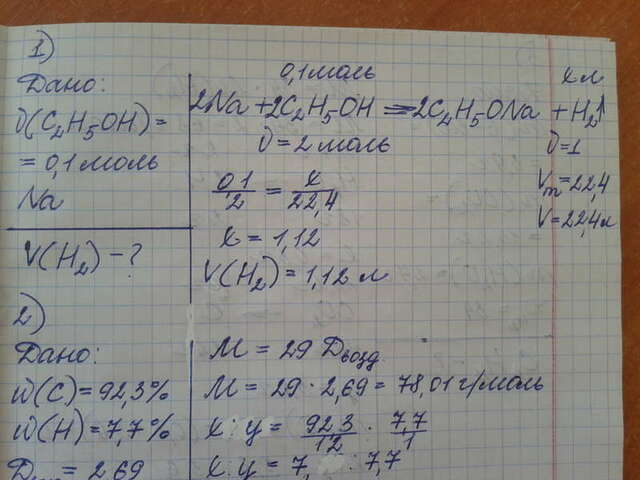 1)
Дано:
ν(C₂H₅OH) =
= 0,1 моль
Na
V(H₂) – ?
0,1 моль x л
2Na + 2C₂H₅OH = 2C₂H₅ONa + H₂↑
ν = 2 моль ν = 1
Vm = 22,4
V = 22,4 л
0,1/2 = x/22,4
x = 1,12
V(H₂) = 1,12 л
2)
Дано:
ω(C) = 92,3%
ω(H) = 7,7%
= 2,69
M = 29 Dвозд.
M = 29 · 2,69 = 78,01 г/моль
x : y = 92,3/12 : 7,7/1
x : y = 7, : 7,7